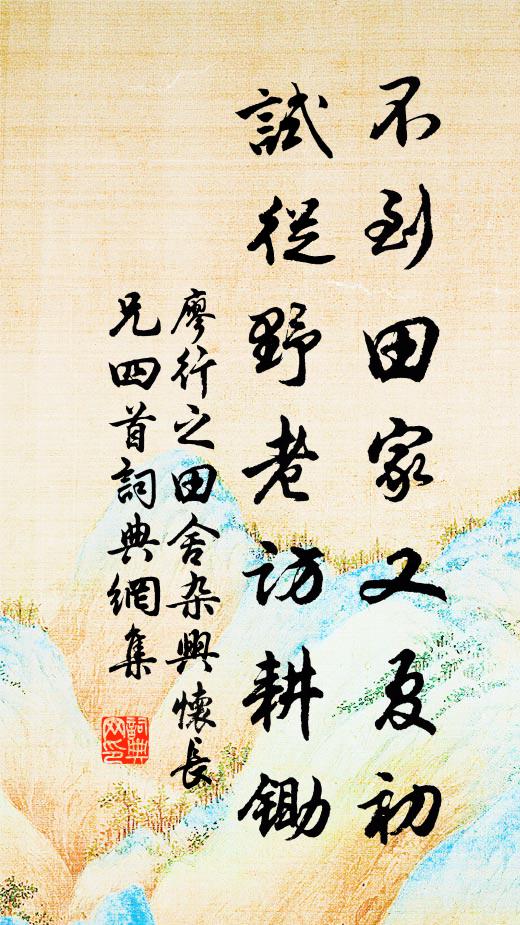 不到田家又夏初
試從野老訪耕鋤
廖行之田舍杂興懷長
兄四首詞典網集
詞典
网印